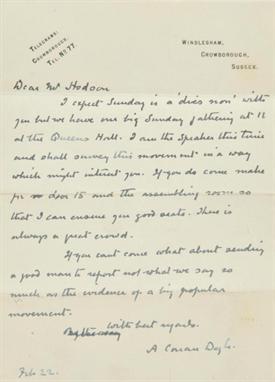 TELEGRAMS:
CROWBOROUGH.
TEL. NO 77.
WINDLESHAM,
CROWBOROUGH,
SUSSEX.
Dear Mr Hodson
I expect Sunday is a 'dies non' with
you but we have our big Sunday gathering at 11
at the Queens Hall. I am the speaker this time
and shall survey this movement in a way
which might interest you. If you do come make
for door 15 and the assembling room so
that I can ensure you good seats. There is
always a great crowd.
If you cant come what about sending
a good man to report not what we say so
much as the evidence of a big popular
movement.
With best regards.
A Conan Doyle.
Feb 22.